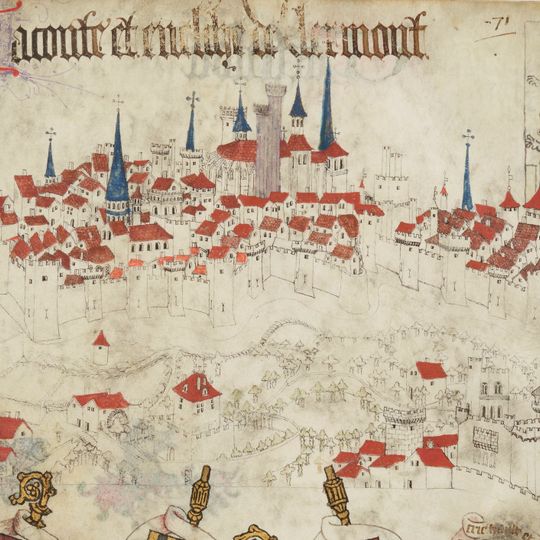 aconte et euesche de clermont
71